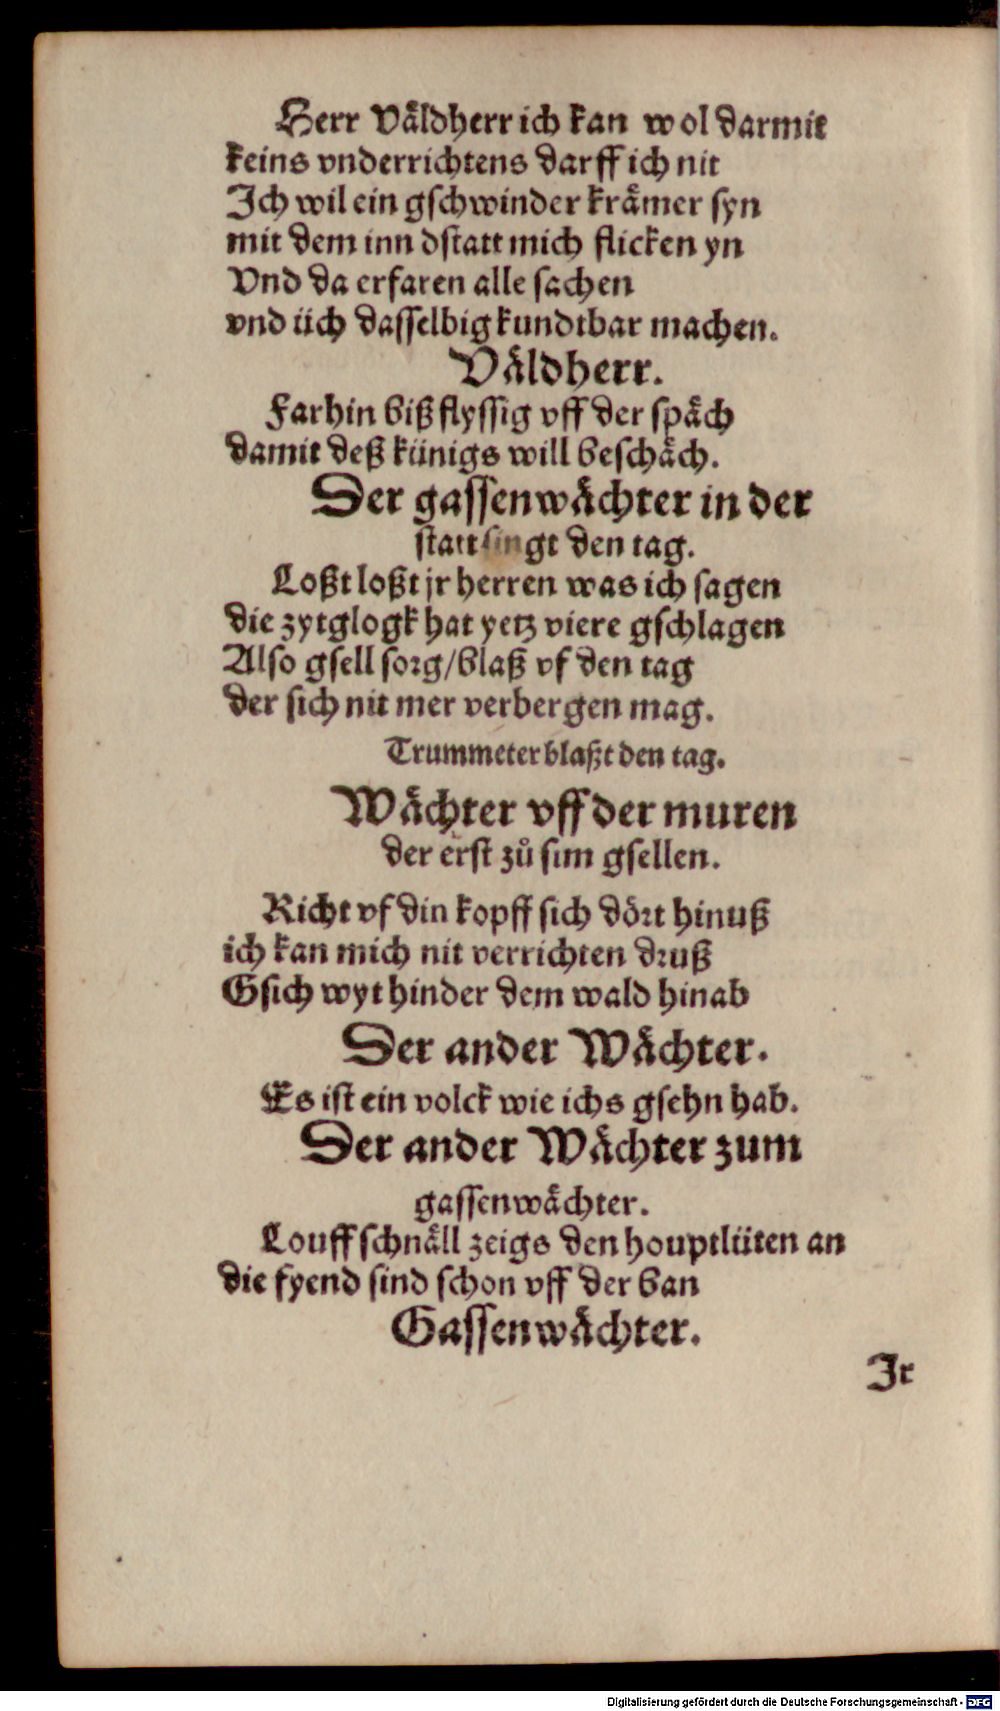 Herr Väldherr ich kan wol darmit
keins vnderrichtens darff ich nit
Ich wil ein gschwinder krämer syn
mit dem inn dstatt mich flicken yn
Vnd da erfaren alle sachen
vnd üch dasselbig kundtbar machen.
Väldherr.
Farhin biß flyssig vff der späch
damit deß künigs will beschäch.
Der gassenwächter in der
statt singt den tag.
Loßt loßt jr herren was ich sagen
die zytglogk hat yetz viere gschlagen
Also gsell sorg/blaß vf den tag
der sich nit mer verbergen mag.
Trummeter blaßt den tag.
Wächter vff der muren
der erst zů sim gsellen.
Richt vf din kopff sich dört hinuß
ich kan mich nit verrichten druß
Gsich wyt hinder dem wald hinab
Der ander Wächter.
Es ist ein volck wie ichs gsehn hab.
Der ander Wächter zum
gassenwächter.
Louff schnäll zeigs den houptlüten an
die fyend sind schon vff der ban
Gassenwächter.
Ir
Digitalisierung gefördert durch die Deutsche Forschungsgemeinschaft - DFG